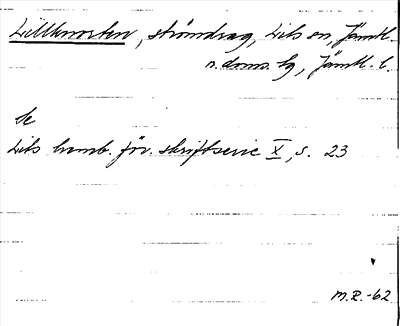 Lillknorten, strömdrag, Lits sn, Jämtl.
n. doms. hg, Jämtl. l.
se
Lits hemb. för. skriftserie X, s. 23
M.R.-62